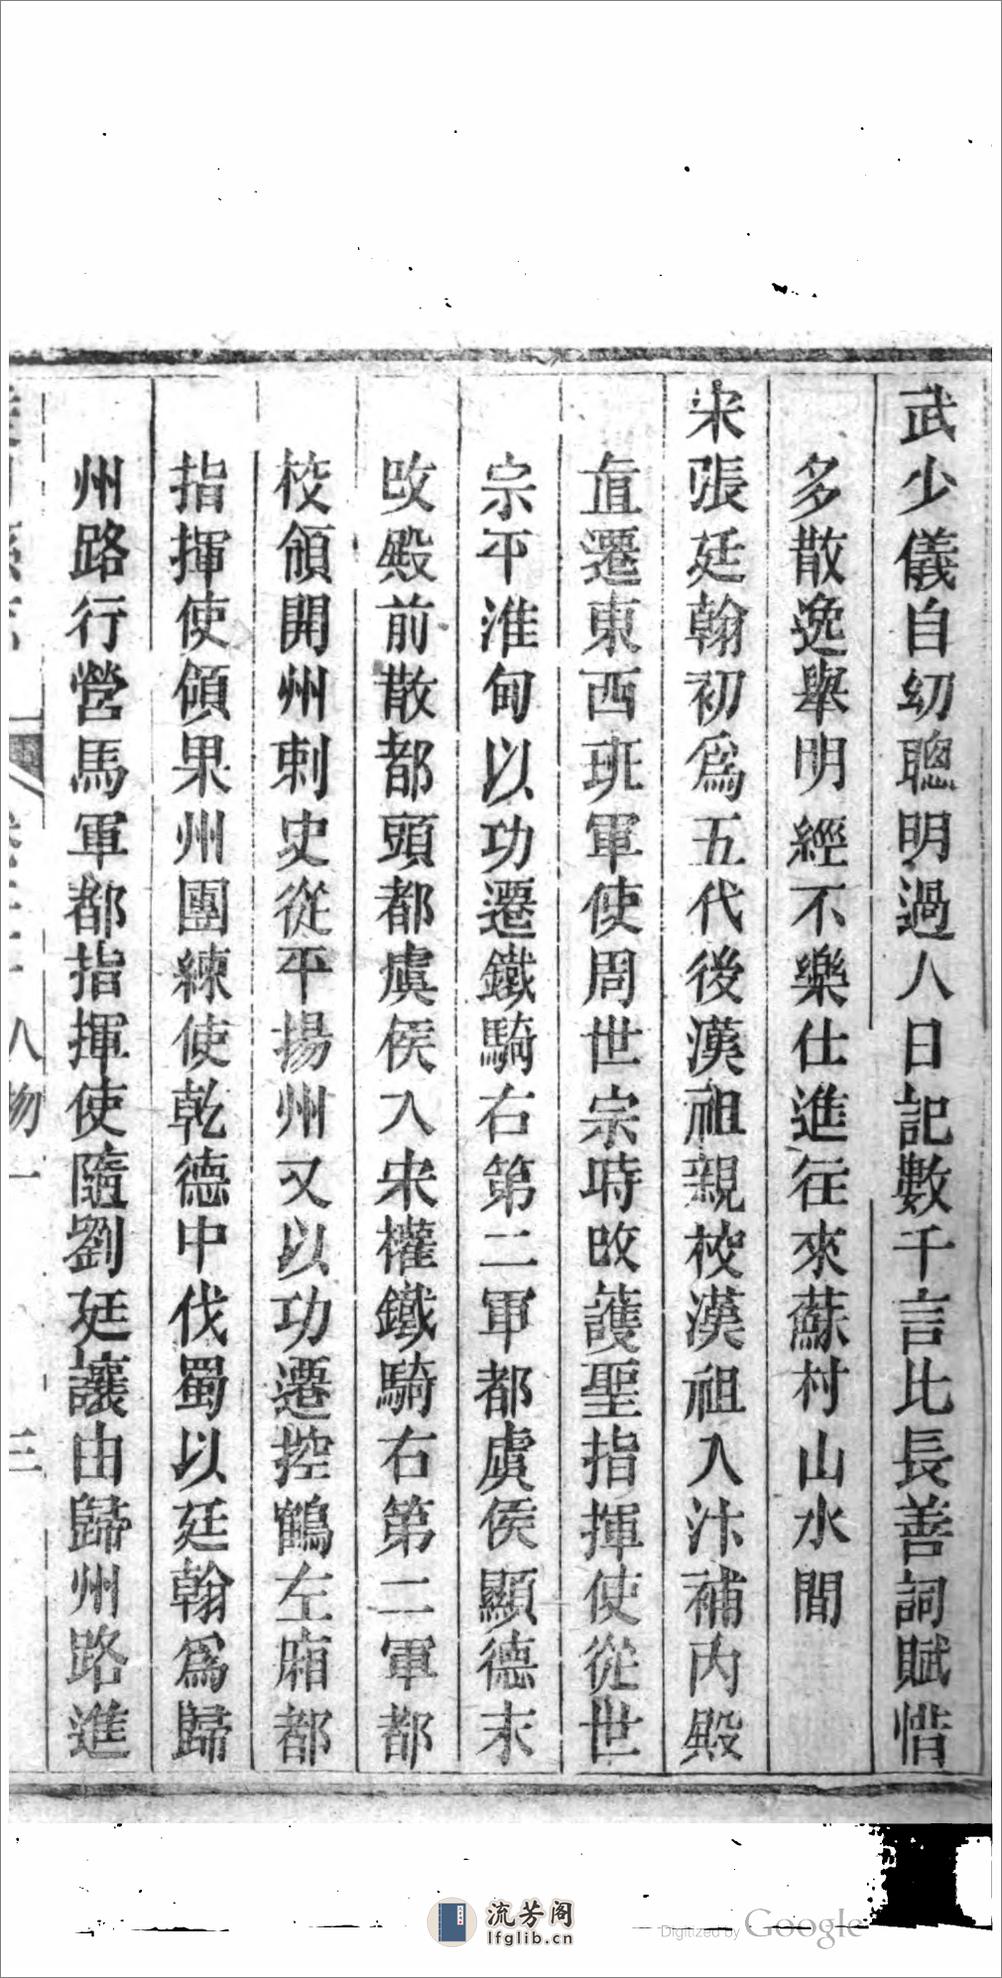 武少儀自幼聰明過人日記數千言比長善詞賦惜
多散逸舉明經不樂仕進往來蘇村山水間
宋張廷翰初爲五代後漢祖親校漢祖入汴補內殿
直遷東西班軍使周世宗時改護聖指揮使從世
宗平淮甸以功遷鐵騎右第二軍都虞侯顯德末
改殿前散都頭都虞侯入宋權鐵騎右第二軍都
校領開州刺史從平揚州又以功遷控鶴左廂都
指揮使領果州團練使乾德中伐蜀以廷翰爲歸
州路行營馬軍都指揮使隨劉廷讓由歸州路進
人物一 三
流芳阁
lfglib.cn
Digitized by Google